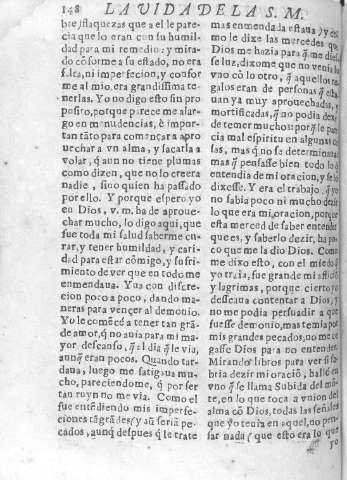 148 LA VIDA DE LA S. M.
bre, flaquezas que a el le pare
cia que lo eran con su humil-
dad para mi remedio: y mira-
do cõforme a su estado, no era
falta, ni imperfecion, y confor
me al mio, era grandissima te-
nerlas. Yo no digo esto sin pro
posito, porque parece me alar-
go en menudencias, è impor-
tan tãto para començar a apro
uechar a vn alma, y sacarla a
volar, q̃ aun no tiene plumas
como dizen, que no lo creera
nadie, sino quien ha passado
por ello. Y porque espero yo
en Dios, v. m. ha de aproue-
char mucho, lo digo aqui, que
fue toda mi salud saberme cu-
rar, y tener humildad, y cari-
dad para estar cõmigo, y sufri-
miento de ver que en todo me
enmendaua. Yua con discre-
cion poco a poco, dando ma-
neras para vençer al demonio.
Yo le començè a tener tan grã-
de amor, q̃ no auia para mi ma
yor descanso, q̃ el dia q̃ le via,
aunq̃ eran pocos. Quando tar-
daua, luego me fatigaua mu-
cho, pareciendome, q̃ por ser
tan ruyn no me via. Como el
fue entẽdiendo mis imperfe-
ciones tã grãdes (y aũ seriã pe-
cados, aunq̃ despues q̃ le trate
mas enmendada estaua) y co
mo le dixe las mercedes que
Dios me hazia para q̃ me diel
se luz, dixome que no venia lo
vno cõ lo otro, q̃ aquellos re-
galos eran de personas q̃ esta
uan ya muy aprouechadas, y
mortificadas, q̃ no podia dexar
de temer mucho: porq̃ le pare
cia mal espiritu en algunas co
sas, mas q̃ no se determinaua,
mas q̃ pensasse bien todo lo q̃
entendia de mi oracion, y se lo
dixesse. Y era el trabajo, q̃ yo
no sabia poco ni mucho dezir
lo que era mi oracion, porque
esta merced de saber entender
que es, y saberlo dezir, ha po-
co que me la dio Dios. Como
me dixo esto, con el miedo q̃
yo traìa, fue grande mi aflició
y lagrimas, porque cierto yo
desseaua contentar a Dios, y
no me podia persuadir a que
fuesse demonio, mas temia por
mis grandes pecados, no me ce
gasse Dios para no entender.
Mirando libros para ver si sa-
bria dezir mi oraciõ, hallè en
vno q̃ se llama Subida del mõ-
te, en lo que toca a vnion del
alma cõ Dios, todas las señales
que yo tenia en aquel, no pen-
sar nada (que esto era lo que
yo